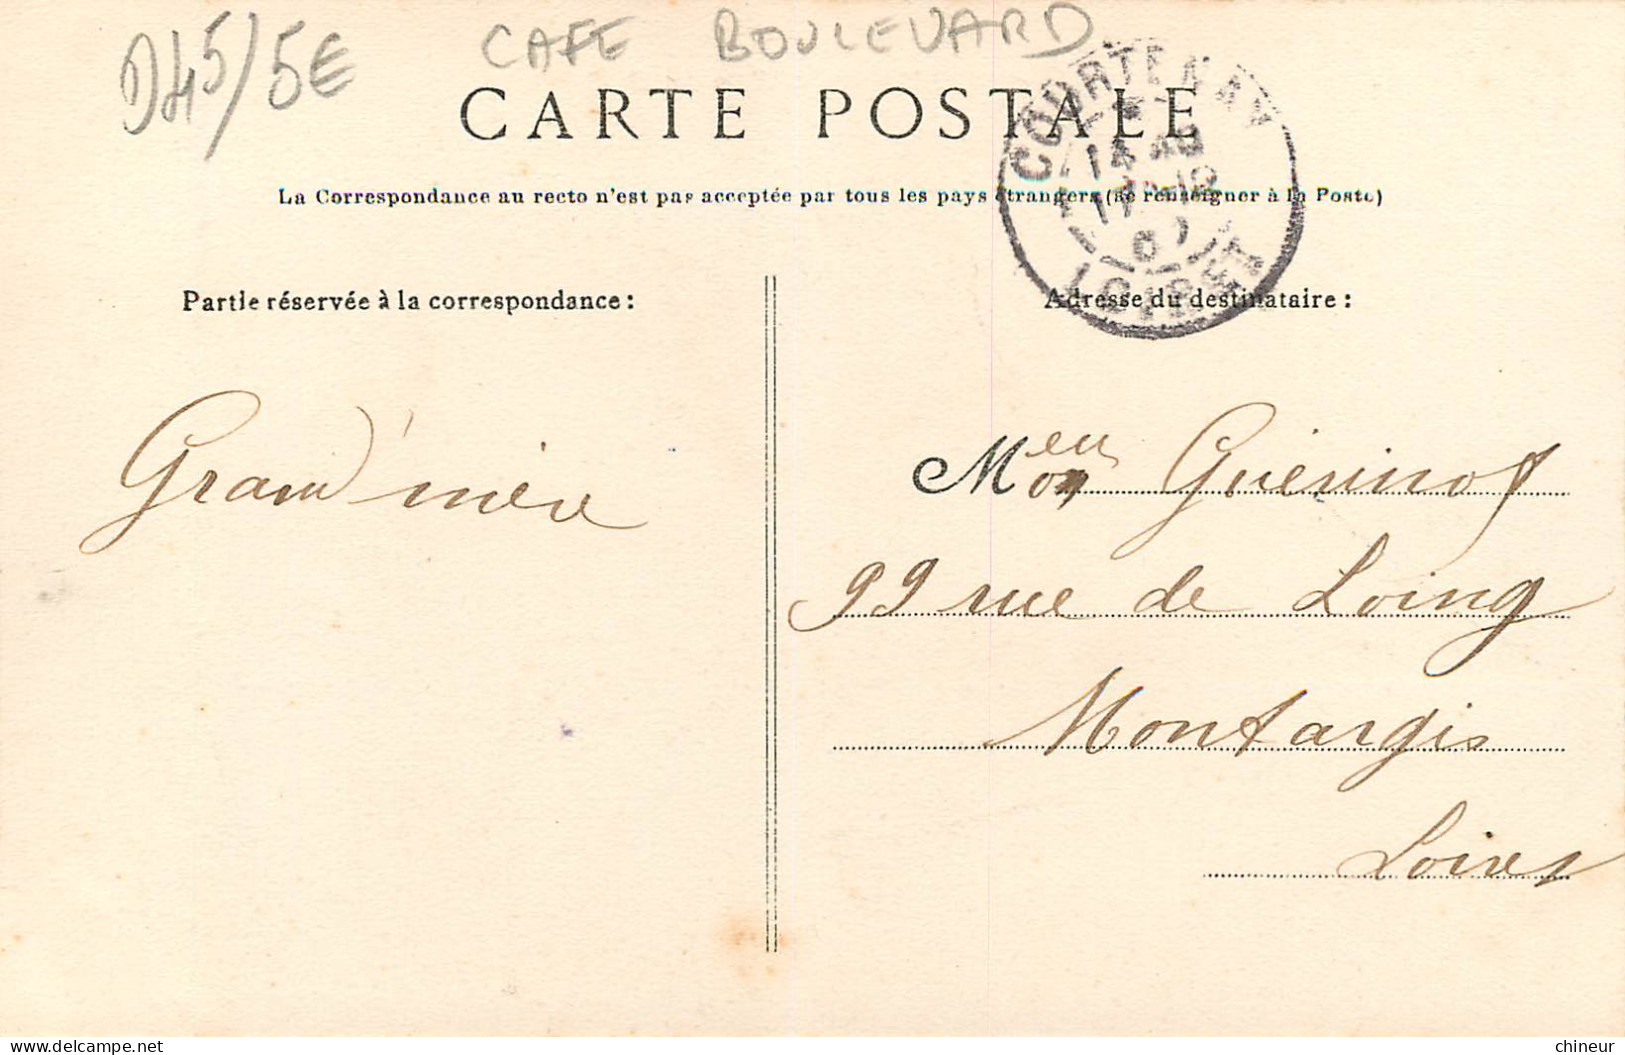 D45/5€ CAFE BOULEVARD
CARTE POSTALE
COURTENAY
14
LOIRET
La Correspondance au recto n'est pas acceptée par tous les pays étrangers (se renseigner à la Poste)
Partie réservée à la correspondance :
Adresse du destinataire :
Grand'mère
Meu Guérinot
99 rue de Loing
Montargis
Loiret
chineur